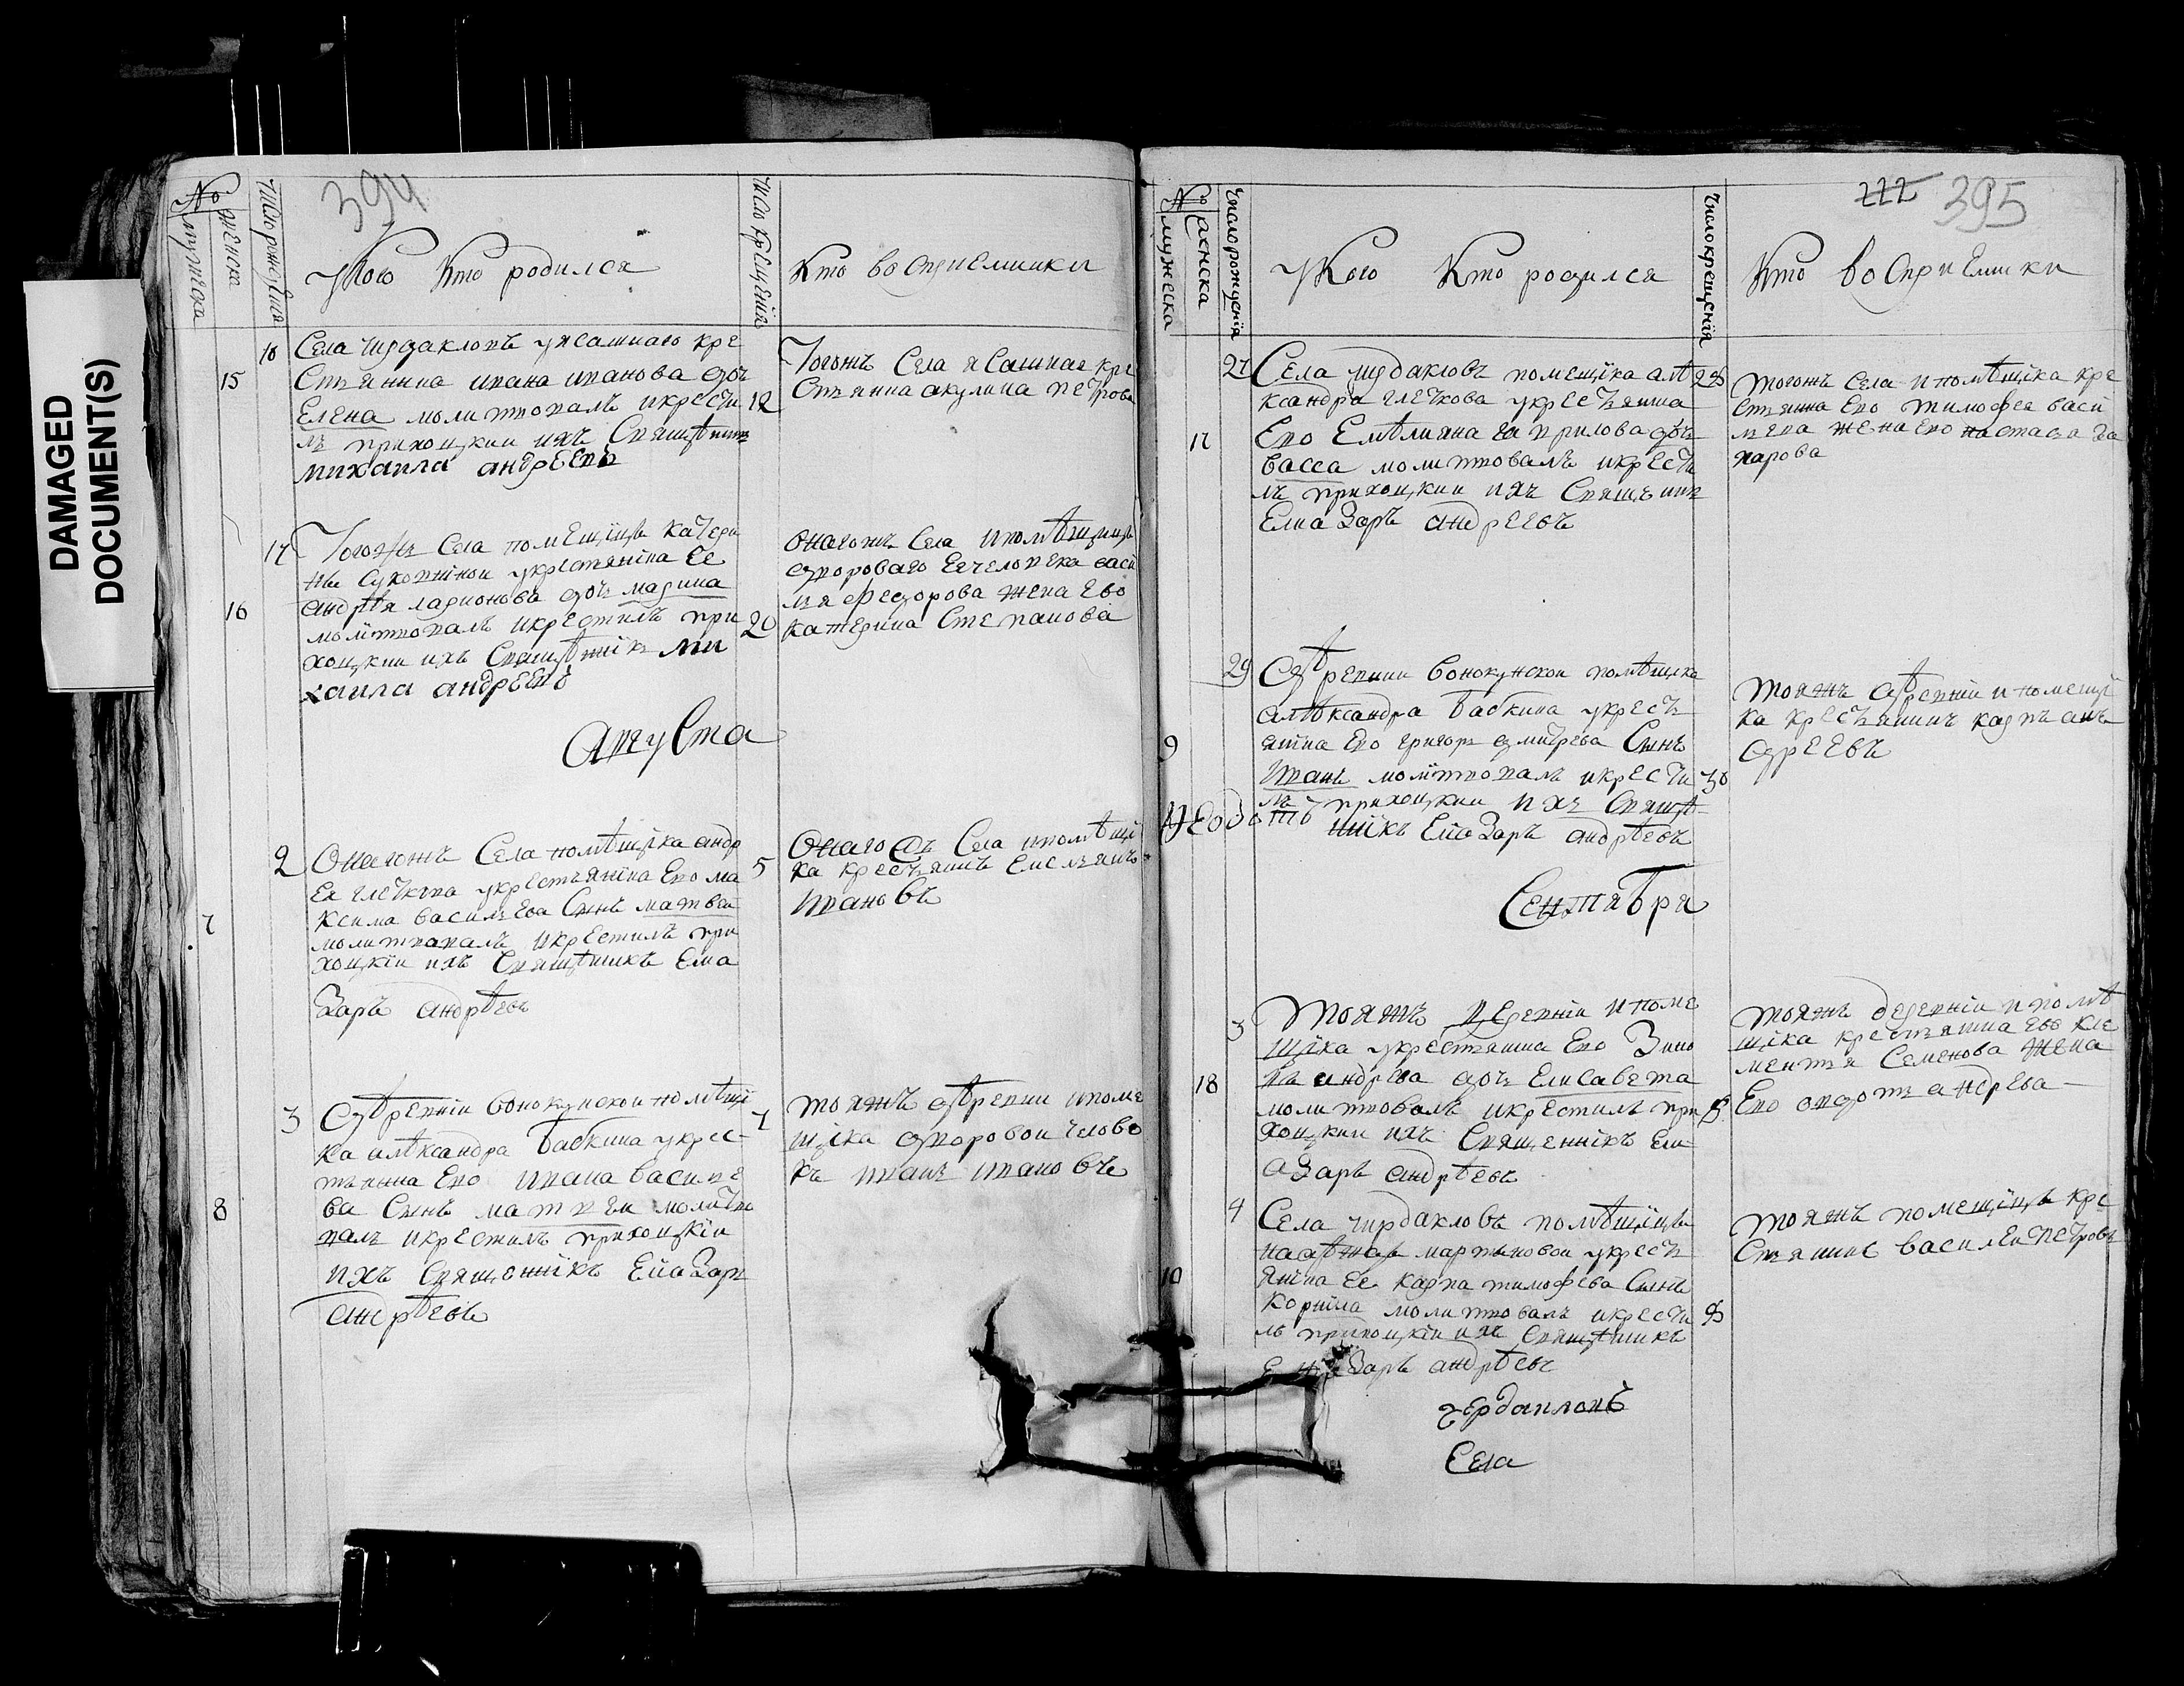 DAMAGED
DOCUMENT(S)
394
№
мужеска
женска
Число рождения
У Кого Кто родился
Число крещения
Кто восприемники
15
10
Села чердакловъ уясашнаго кре
стьянина ивана иванова дочь
Елена молитвовалъ икрести
12
лъ приходцкии ихъ Священникъ
михаила андреевъ
Тогожъ Села ясашная кре
стьянка акулина петрова
16
17
Тогожъ Села помещицы Катери
укрестьянина Ее
андрея ларионова дочь марина
молитвовалъ икрестилъ при
20
ходцкии ихъ Священникъ ми
хаила андреевъ
Оногожъ Села ипомѣщицы
дворового Ея человека васи
лья Федорова жена Ево
катерина Степанова
Августа
7
2
Оногожъ Села помѣщика андр
Ея глечкова укрестьянина Ево ма
5
ксима василева Сынъ матвеи
молитвовалъ икрестилъ при
ходцкии ихъ Священникъ Елиа
заръ андрѣевъ
Оногожъ Села ипомѣщи
ка крестьянинъ Емельянъ
ивановъ
8
3
Дѣревни помѣщи
ка алѣксандра бабкина укрес
7
тьянина Ево ивана василе
ва Сынъ матвеи молитво
валъ икрестилъ приходцкии
ихъ Священникъ Елиазаръ
андрѣевъ
тояжъ дѣревни ипоме
щика дворовои челове
къ иванъ ивановъ
222 395
№
мужеска
женска
Число рождения
У Кого Кто родился
Число крещения
Кто восприемники
17
27
Села чердакловъ помещика алѣ
28
ксандра глечкова укрестьянина
Ево Емѣльяна гаврилова дочь
васса молитвовалъ икрести
лъ приходцкии ихъ Священникъ
Елиазаръ андреевъ
тогожъ Села ипомѣщика кре
стьянина Ево тимофея васи
льева жена Ево настасья за
харова
9
29
Дѣревни помѣщика
алѣксандра бабкина укресть
янина Ево григорья дмитрева Сынъ
иванъ молитвовалъ икрести
30
лъ приходцкии ихъ Священ
никъ Елиазаръ андрѣевъ
тояжъ дѣревни ипомещи
ка крестьянинъ карпъ ан
дреевъ
Сентября
18
3
Тояжъ деревни ипоме
щика укрестьянина Ево Зино
вья андреева дочь Елисавета
молитвовалъ икрестилъ при
ходцкии ихъ Священникъ Ели
азаръ андрѣевъ
тояжъ деревни ипомѣ
щика крестьянина ево кле
ментья Семенова жена
Ево авдотья андреева
10
4
Села чердакловъ помѣщицы
мартыновои укресть
янина Ее карпа тимофеева Сынъ
корнила молитвовалъ икрести
лъ приходцкии ихъ Священникъ
Елиазаръ андрѣевъ
тояжъ помещицы кре
стьянинъ василеи петровъ
чердакловъ
Села